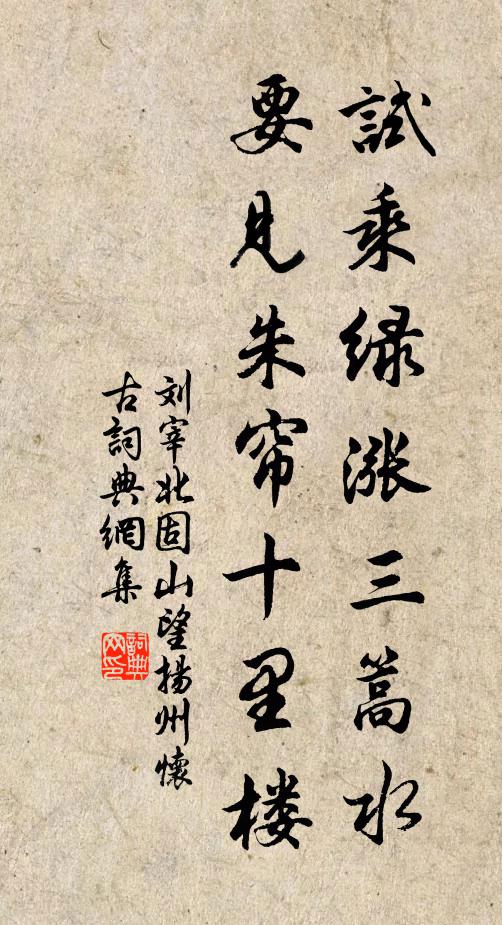 試乘绿涨三篙水
要见朱帘十里楼
刘宰北固山望揚州懷
古詞典網集
詞典网印